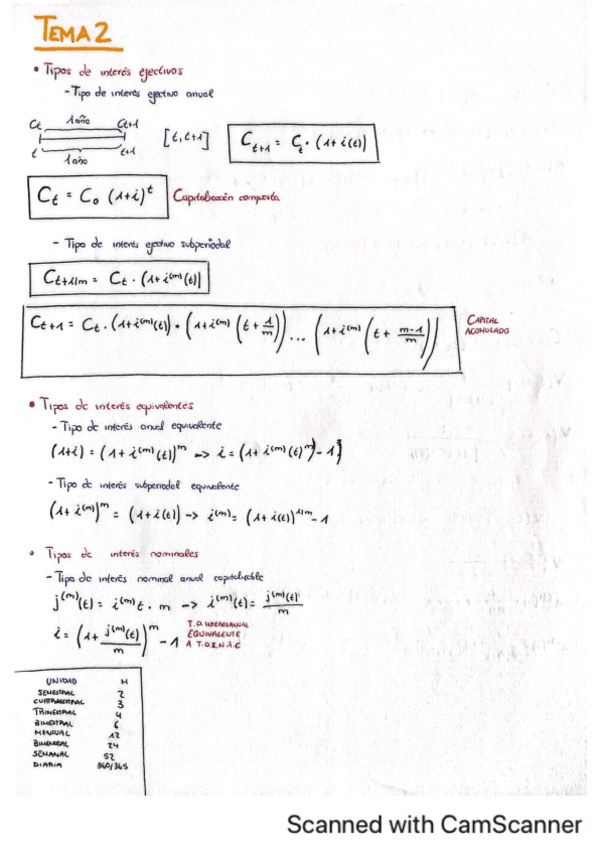 TEMA 2
• Tipos de interés efectivos
- Tipo de interés efectivo anual
1 año
Ct Ct+1
t t+1
1 año
[t, t+1]
C_{t+1} = C_t · (1 + i(t))
C_t = C_0 (1+i)^t Capitalización compuesta
- Tipo de interés efectivo subperiodal
C_{t+1/m} = C_t · (1 + i^{(m)}(t))
C_{t+1} = C_t · (1 + i^{(m)}(t)) · (1 + i^{(m)} (t + 1/m)) ... (1 + i^{(m)} (t + m-1/m))
CAPITAL
ACOMULADO
• Tipos de interés equivalentes
- Tipo de interés anual equivalente
(1+i) = (1 + i^{(m)}(t))^m -> i = (1 + i^{(m)}(t)^m) - 1]
- Tipo de interés subperiodal equivalente
(1 + i^{(m)})^m = (1 + i(t)) -> i^{(m)} = (1 + i(t))^{1/m} - 1
• Tipos de interés nominales
- Tipo de interés nominal anual capitalizable
j^{(m)}(t) = i^{(m)}t · m -> i^{(m)}(t) = j^{(m)}(t)/m
i = (1 + j^{(m)}(t)/m)^m - 1
EQUIVALENTE
UNIDAD M
SEMESTRAL 2
CUATRIMESTRAL 3
TRIMESTRAL 4
BIMESTRAL 6
MENSUAL 12
BIMENSUAL 24
SEMANAL 52
DIARIA 360/365
Scanned with CamScanner